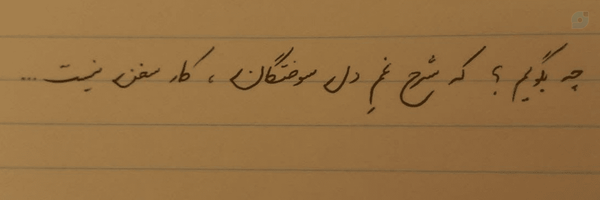 چه بگویم ؟ که شرح غمِ دل سوختگان ، کار سخن نیست ...